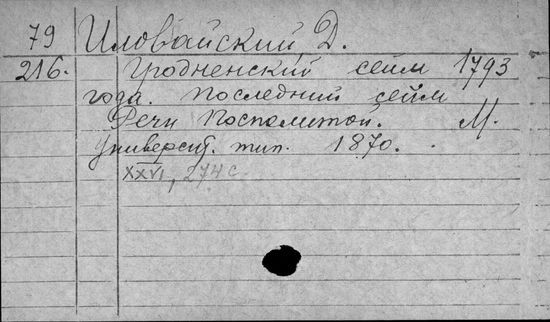 79 Иловайский, Д.
216. Гродненский сейм 1793
года. Последний сейм
Речи Посполитой. М.
Университ. тип. 1870.
XXVI, 274 с.